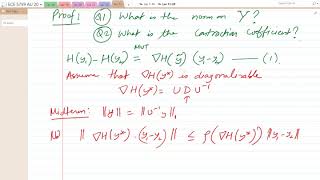 ECE 5759 AU 20
Proof: Q1 What is the norm on Y?
Q2 What is the contraction coefficient?
MVT
H(y₁) - H(y₂) = ∇H(ỹ) (y₁-y₂) —— (1)
Assume that ∇H(y*) is diagonalisable
∇H(y*) = U D U⁻¹
Midterm: ‖y‖ = ‖U⁻¹y‖₁
‖ ∇H(y*) · (y₁-y₂) ‖ ≤ ρ(∇H(y*)) ‖y₁-y₂‖